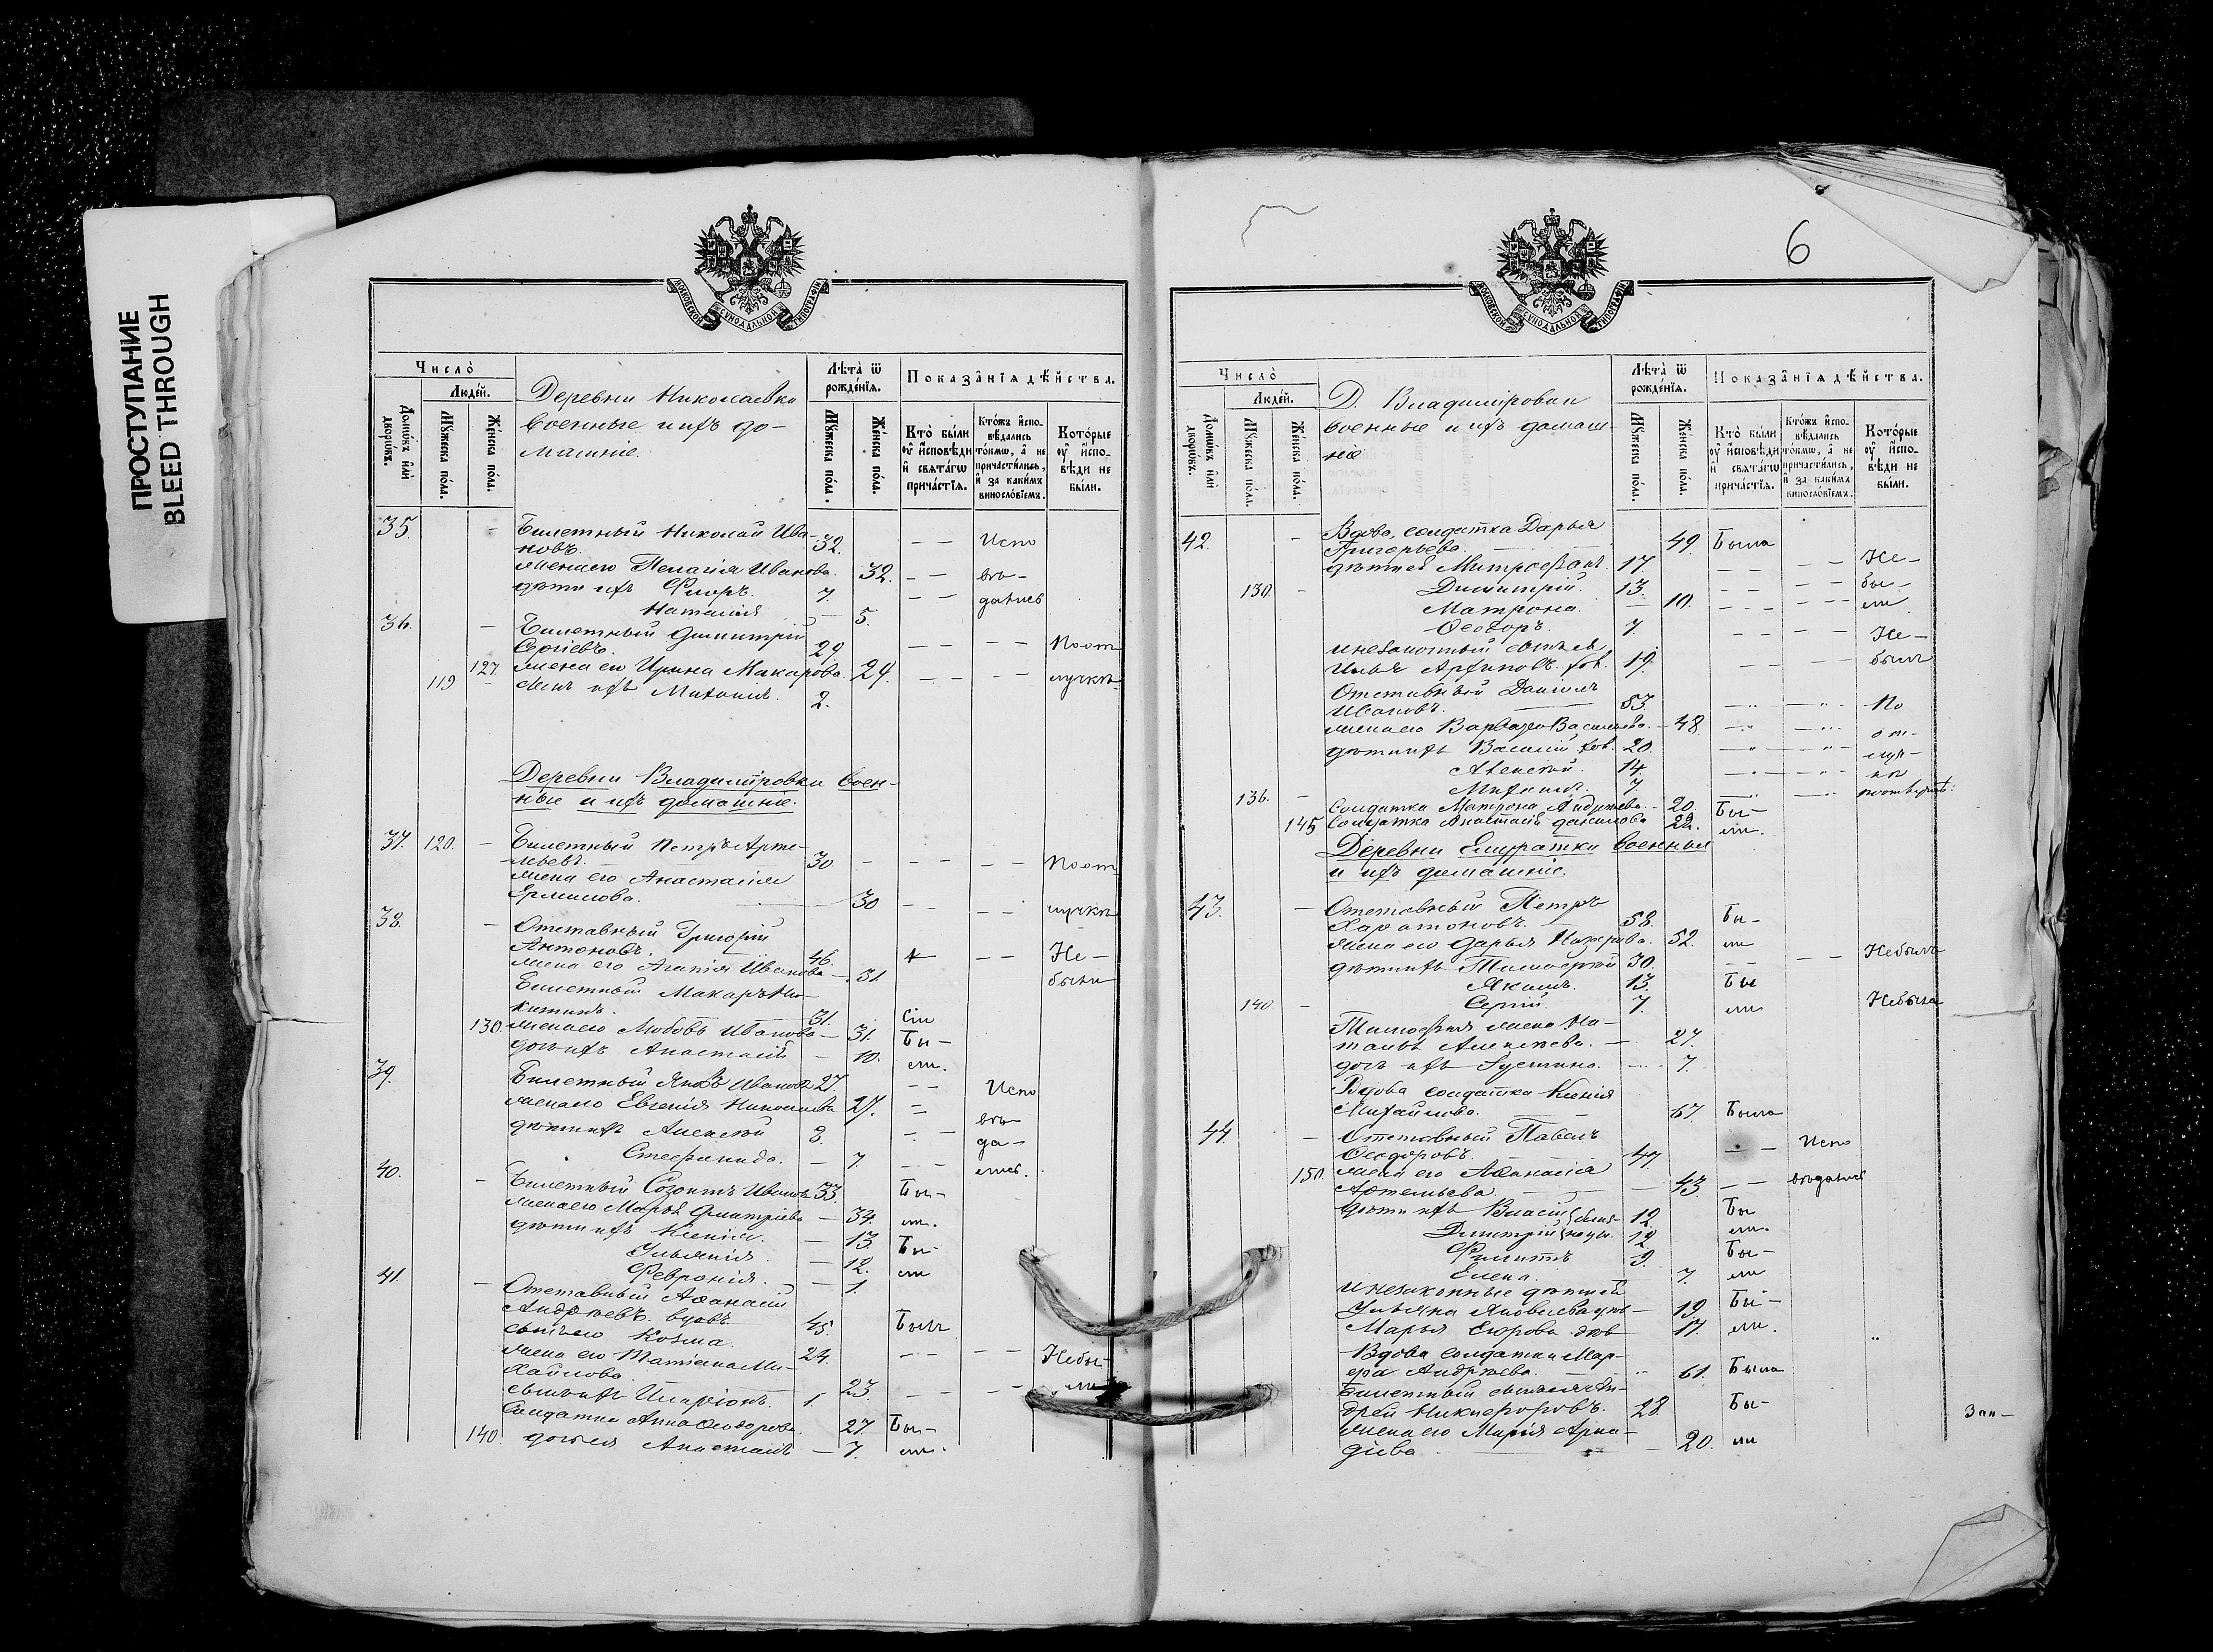 ПРОСТУПАНИЕ
BLEED THROUGH
МОСКОВСКОЙ СѴНОДАЛЬНОЙ ТИПОГРАФІИ
Число̀
Люде́й.
Домо́въ и҆лѝ дворо́въ.
Мꙋ́жеска по́ла.
Же́нска по́ла.
Деревни Николаевки
военные и ихъ до-
машніе.
Лѣта̀ ѿ рожде́нїѧ.
Мꙋ́жеска по́ла.
Же́нска по́ла.
Показа̑нїѧ дѣ́йства.
Кто̀ бы́ли ᲂу҆ и҆́сповѣди и҆ свѧта́гѡ прича́стїѧ.
Кто́жъ и҆спо-вѣ́дались то́кмѡ, а҆ не причасти́лись, и҆ за каки́мъ винослѡ́вїемъ.
Кото́рые ᲂу҆ и҆спо-вѣ́ди не бы́ли.
35. - Билетный Николай Ива-
новъ. 32. - - Испо
жена его Пелагія Иванова. 32. - - вѣ-
дѣти ихъ Флоръ. 7. - - дались
Наталія - 5.
36. - Билетный Димитрій
Сергіевъ. 29 - - - - По от
127. жена его Ирина Макарова. 29. - - - - лучкѣ
119 - сынъ ихъ Михаилъ. 2.
Деревни Владимировки воен-
ные и ихъ домашніе.
37. 120. - Билетный Петръ Арте-
мьевъ. 30 - - - - По от
жена его Анастасія
Ермилова. 30 - - - лучкѣ
38. - Отставный Григорій
Антоновъ. 46. - - Не -
жена его Агапія Иванова - 31. были
Билетный Макаръ Ни-
китинъ. 31. Сіи
130. жена его Любовь Иванова - 31. Бы-
дочь ихъ Анастасія - 10. ли.
39. Билетный Яковъ Ивановъ 27. - - Испо
жена его Евгенія Николаева 27. - вѣ-
дѣти ихъ Алексѣй 8. - - да-
Стефанида. - 7. - - лись.
40. - Билетный Созонтъ Ивановъ 33. Бы-
жена его Марья Дмитріева - 34. ли.
дѣти ихъ Ксенія. - 13 Бы-
Ульянія. - 12. ли
Февронія. - 1.
41. - Отставный Аѳанасій
Андреевъ. вдовъ 45. Былъ
сынъ его Козма. 24. - - - - Небы-
жена его Татіана Ми-
хайлова. 23 - - - - ли
сынъ ихъ Иларіонъ. 1.
Солдатка Анна Ѳеодорова. 27. Бы-
140. дочь ея Анастасія - 7. ли.
6
МОСКОВСКОЙ СѴНОДАЛЬНОЙ ТИПОГРАФІИ
Число̀
Люде́й.
Домо́въ и҆лѝ дворо́въ.
Мꙋ́жеска по́ла.
Же́нска по́ла.
Д. Владимировки
военные и ихъ домаш-
ніе
Лѣта̀ ѿ рожде́нїѧ.
Мꙋ́жеска по́ла.
Же́нска по́ла.
Показа̑нїѧ дѣ́йства.
Кто̀ бы́ли ᲂу҆ и҆́сповѣди и҆ свѧта́гѡ прича́стїѧ.
Кто́жъ и҆спо-вѣ́дались то́кмѡ, а҆ не причасти́лись, и҆ за каки́мъ винослѡ́вїемъ.
Кото́рые ᲂу҆ и҆спо-вѣ́ди не бы́ли.
42. - Вдова, солдатка Дарья
Григорьева. 49. Была
дѣти ея Митрофанъ. 17. - - - - Не -
130. - Димитрій. 13. - - - - бы -
Матрона. - 10. - - - - ли
Ѳеодоръ. 7. - - - - Не -
и незаконный
Илья Архиповъ. 19. - - - - былъ
Отставный Даніилъ
Ивановъ. 53. - - По
жена его Варвара Васильева. - 48 - - от-
дѣти ихъ Василій 20. - - луч-
Алексѣй. 14. - - кѣ
136. - Михаилъ. 7
Солдатка Матрона Андреева. - 20. Бы-
145 Солдатка Анастасія Данилова 22. ли.
Деревни Елшратки военныя
и ихъ домашніе.
43. - Отставный Петръ
Харитоновъ. 58. Бы-
жена его Дарья 52. ли
дѣти ихъ Тимоѳей 30. - - - - Небылъ
Якимъ. 13. Бы
140 - Сергій. 7. ли Небыла
Тимоѳея жена На-
талья Алексѣева. - 27.
дочь ихъ Іустина. - 7.
Вдова солдатка Ксенія
Михайлова. 67. Была
44. - Отставный Павелъ
Ѳеодоровъ. 47. - - Испо
150. жена его Аѳанасія
Артемьева. - 43. - - вѣдались
дѣти ихъ Власій близ- 12 Бы
Димитрій нецы. 12 ли.
Филиппъ 9. Бы-
Елена. 7. ли
и незаконные дѣти ея
Ульяна Яковлева - 19. Бы-
Марья Егорова 17. ли.
Вдова солдатка Мар-
ѳа Андреева. 61. Была
Билетный сынъ ея Ан-
дрей Никифоровъ. 28. Бы-
жена его Марія Арка-
діева - 20. ли